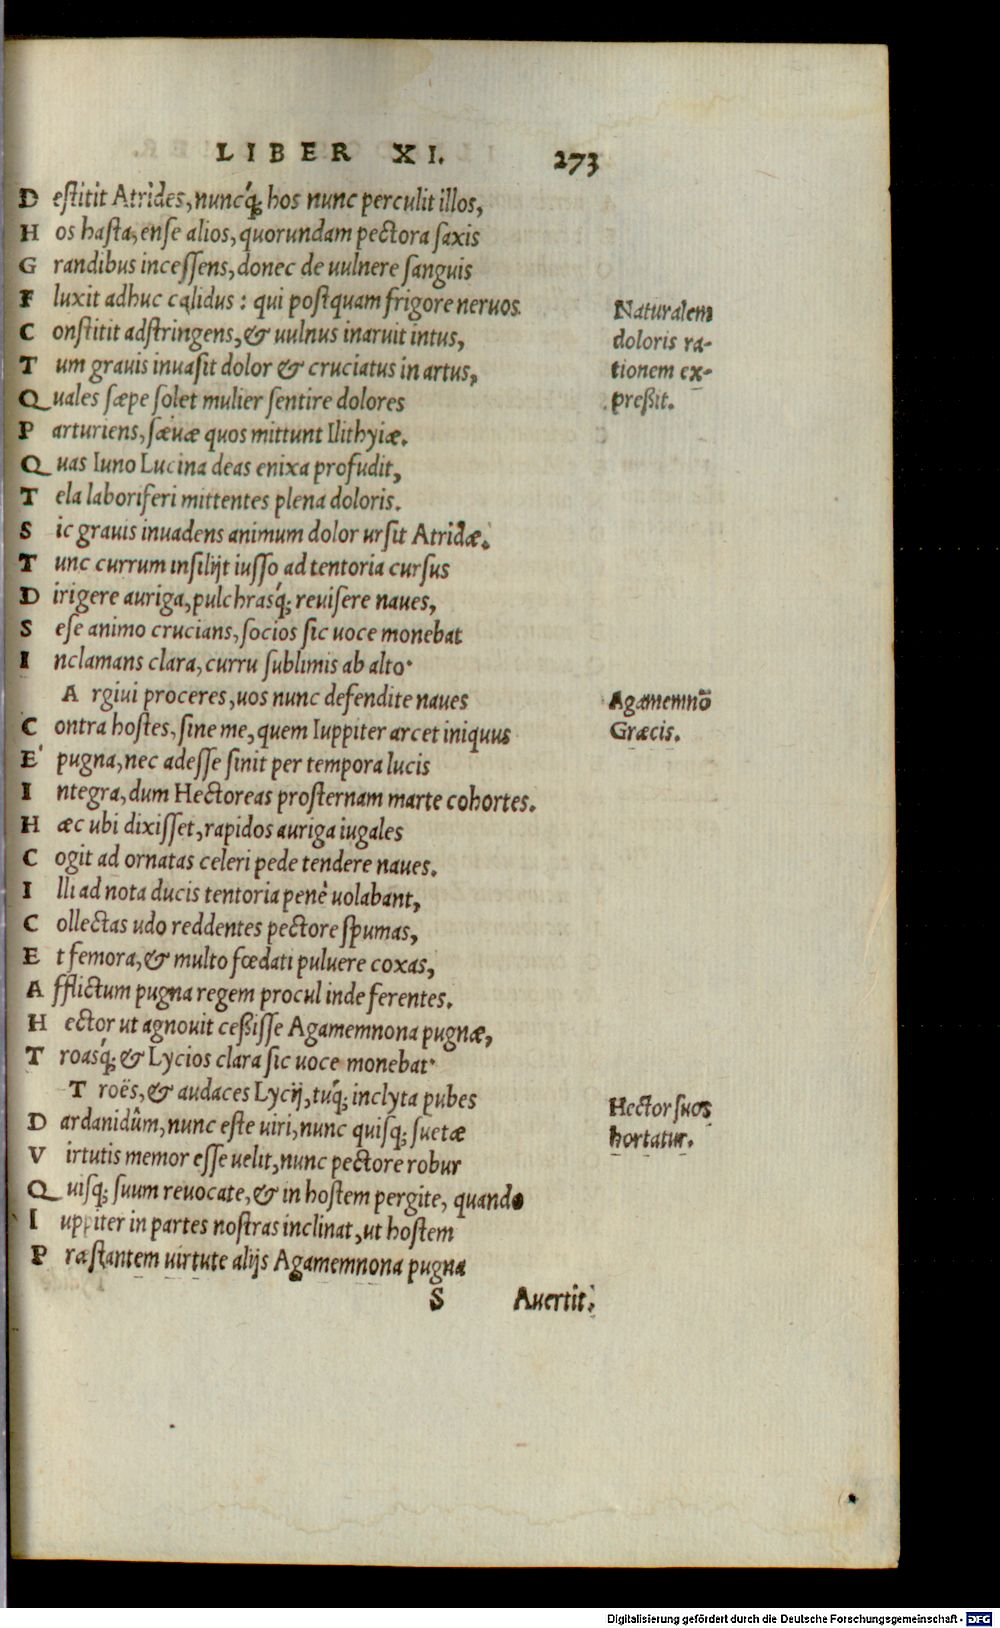 LIBER XI. 273
Destitit Atrides, nuncq́; hos nunc perculit illos,
Hos hasta, ense alios, quorundam pectora saxis
Grandibus incessens, donec de uulnere sanguis
Fluxit adhuc calidus : qui postquam frigore neruos
Constitit adstringens, & uulnus inaruit intus,
Tum grauis inuasit dolor & cruciatus in artus,
Quales sæpe solet mulier sentire dolores
Parturiens, sæuæ quos mittunt Ilithyiæ.
Quas Iuno Lucina deas enixa profudit,
Tela laboriferi mittentes plena doloris.
Sic grauis inuadens animum dolor ursit Atridæ.
Tunc currum insilijt iusso ad tentoria cursus
Dirigere auriga, pulchrasq́; reuisere naues,
Sese animo crucians, socios sic uoce monebat
Inclamans clara, curru sublimis ab alto.
Argiui proceres, uos nunc defendite naues
Contra hostes, sine me, quem Iuppiter arcet iniquus
E' pugna, nec adesse sinit per tempora lucis
Integra, dum Hectoreas prosternam marte cohortes.
Hæc ubi dixisset, rapidos auriga iugales
Cogit ad ornatas celeri pede tendere naues.
Illi ad nota ducis tentoria penè uolabant,
Collectas udo reddentes pectore spumas,
Et femora, & multo fœdati puluere coxas,
Afflictum pugna regem procul inde ferentes.
Hector ut agnouit ceßisse Agamemnona pugnæ,
Troasq́; & Lycios clara sic uoce monebat.
Troës, & audaces Lycij, tuq́; inclyta pubes
Dardanidûm, nunc este uiri, nunc quisq; suetæ
Virtutis memor esse uelit, nunc pectore robur
Quisq; suum reuocate, & in hostem pergite, quando
Iuppiter in partes nostras inclinat, ut hostem
Præstantem uirtute alijs Agamemnona pugna
S Auertit.
Naturalem
doloris ra-
tionem ex-
preßit.
Agamemnō
Græcis.
Hector suos
hortatur.
Digitalisierung gefördert durch die Deutsche Forschungsgemeinschaft - DFG